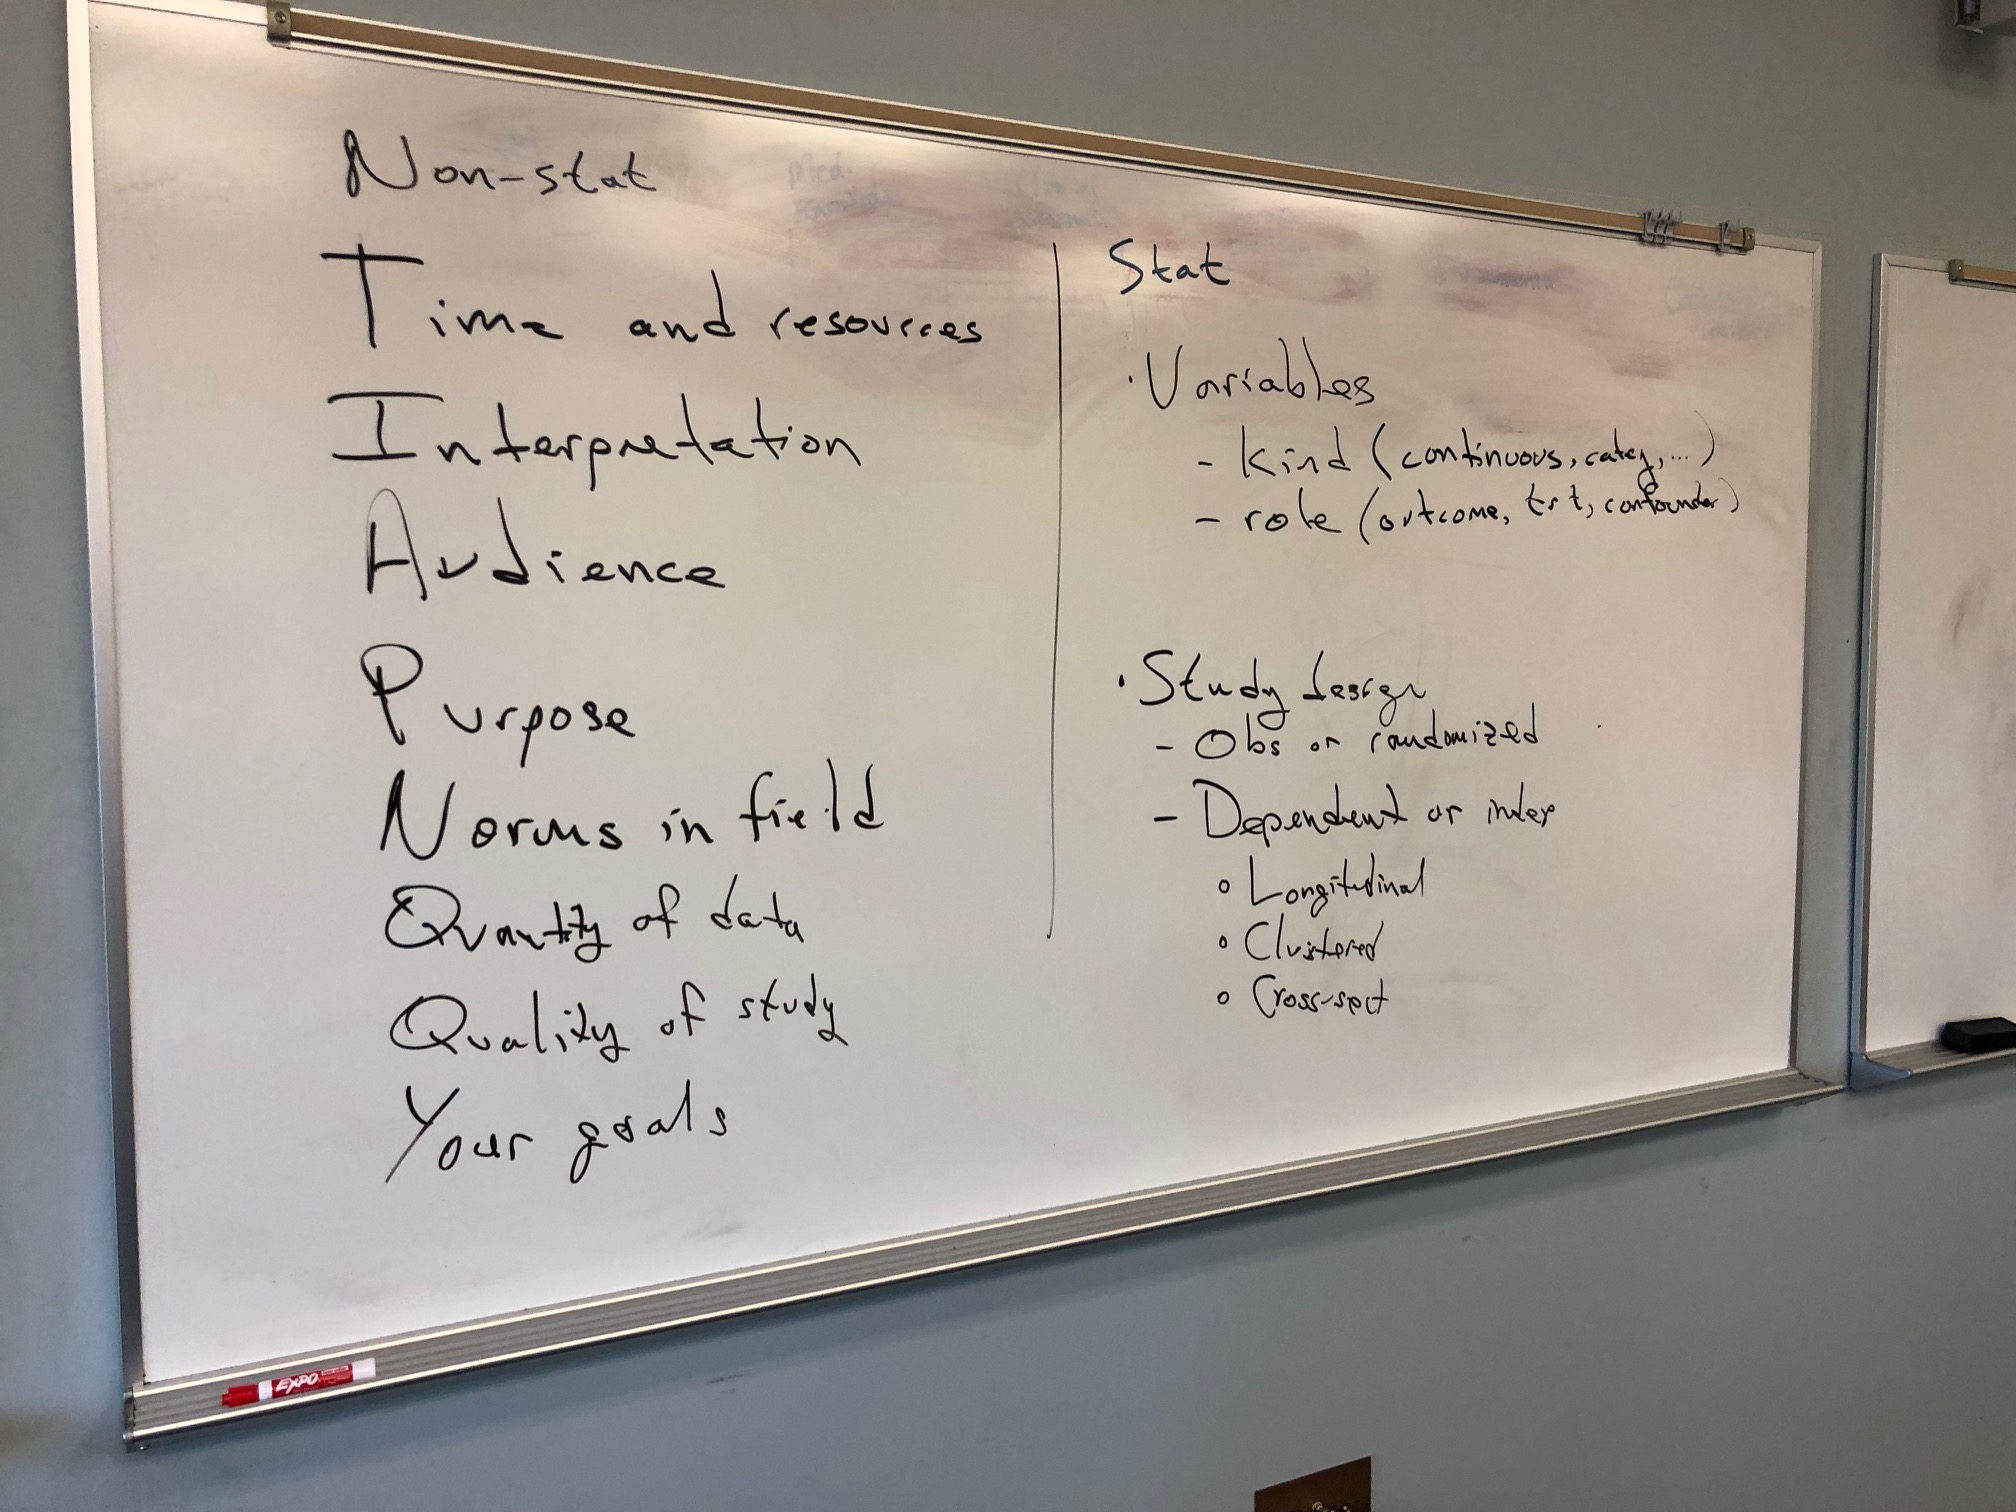 Non-stat
Time and resources
Interpretation
Audience
Purpose
Norms in field
Quantity of data
Quality of study
Your goals
Stat
· Variables
- Kind (continuous, categ, ...)
- role (outcome, trt, confounder)
· Study design
- Obs or randomized
- Dependent or indep
o Longitudinal
o Clustered
o Cross-sect
EXPO